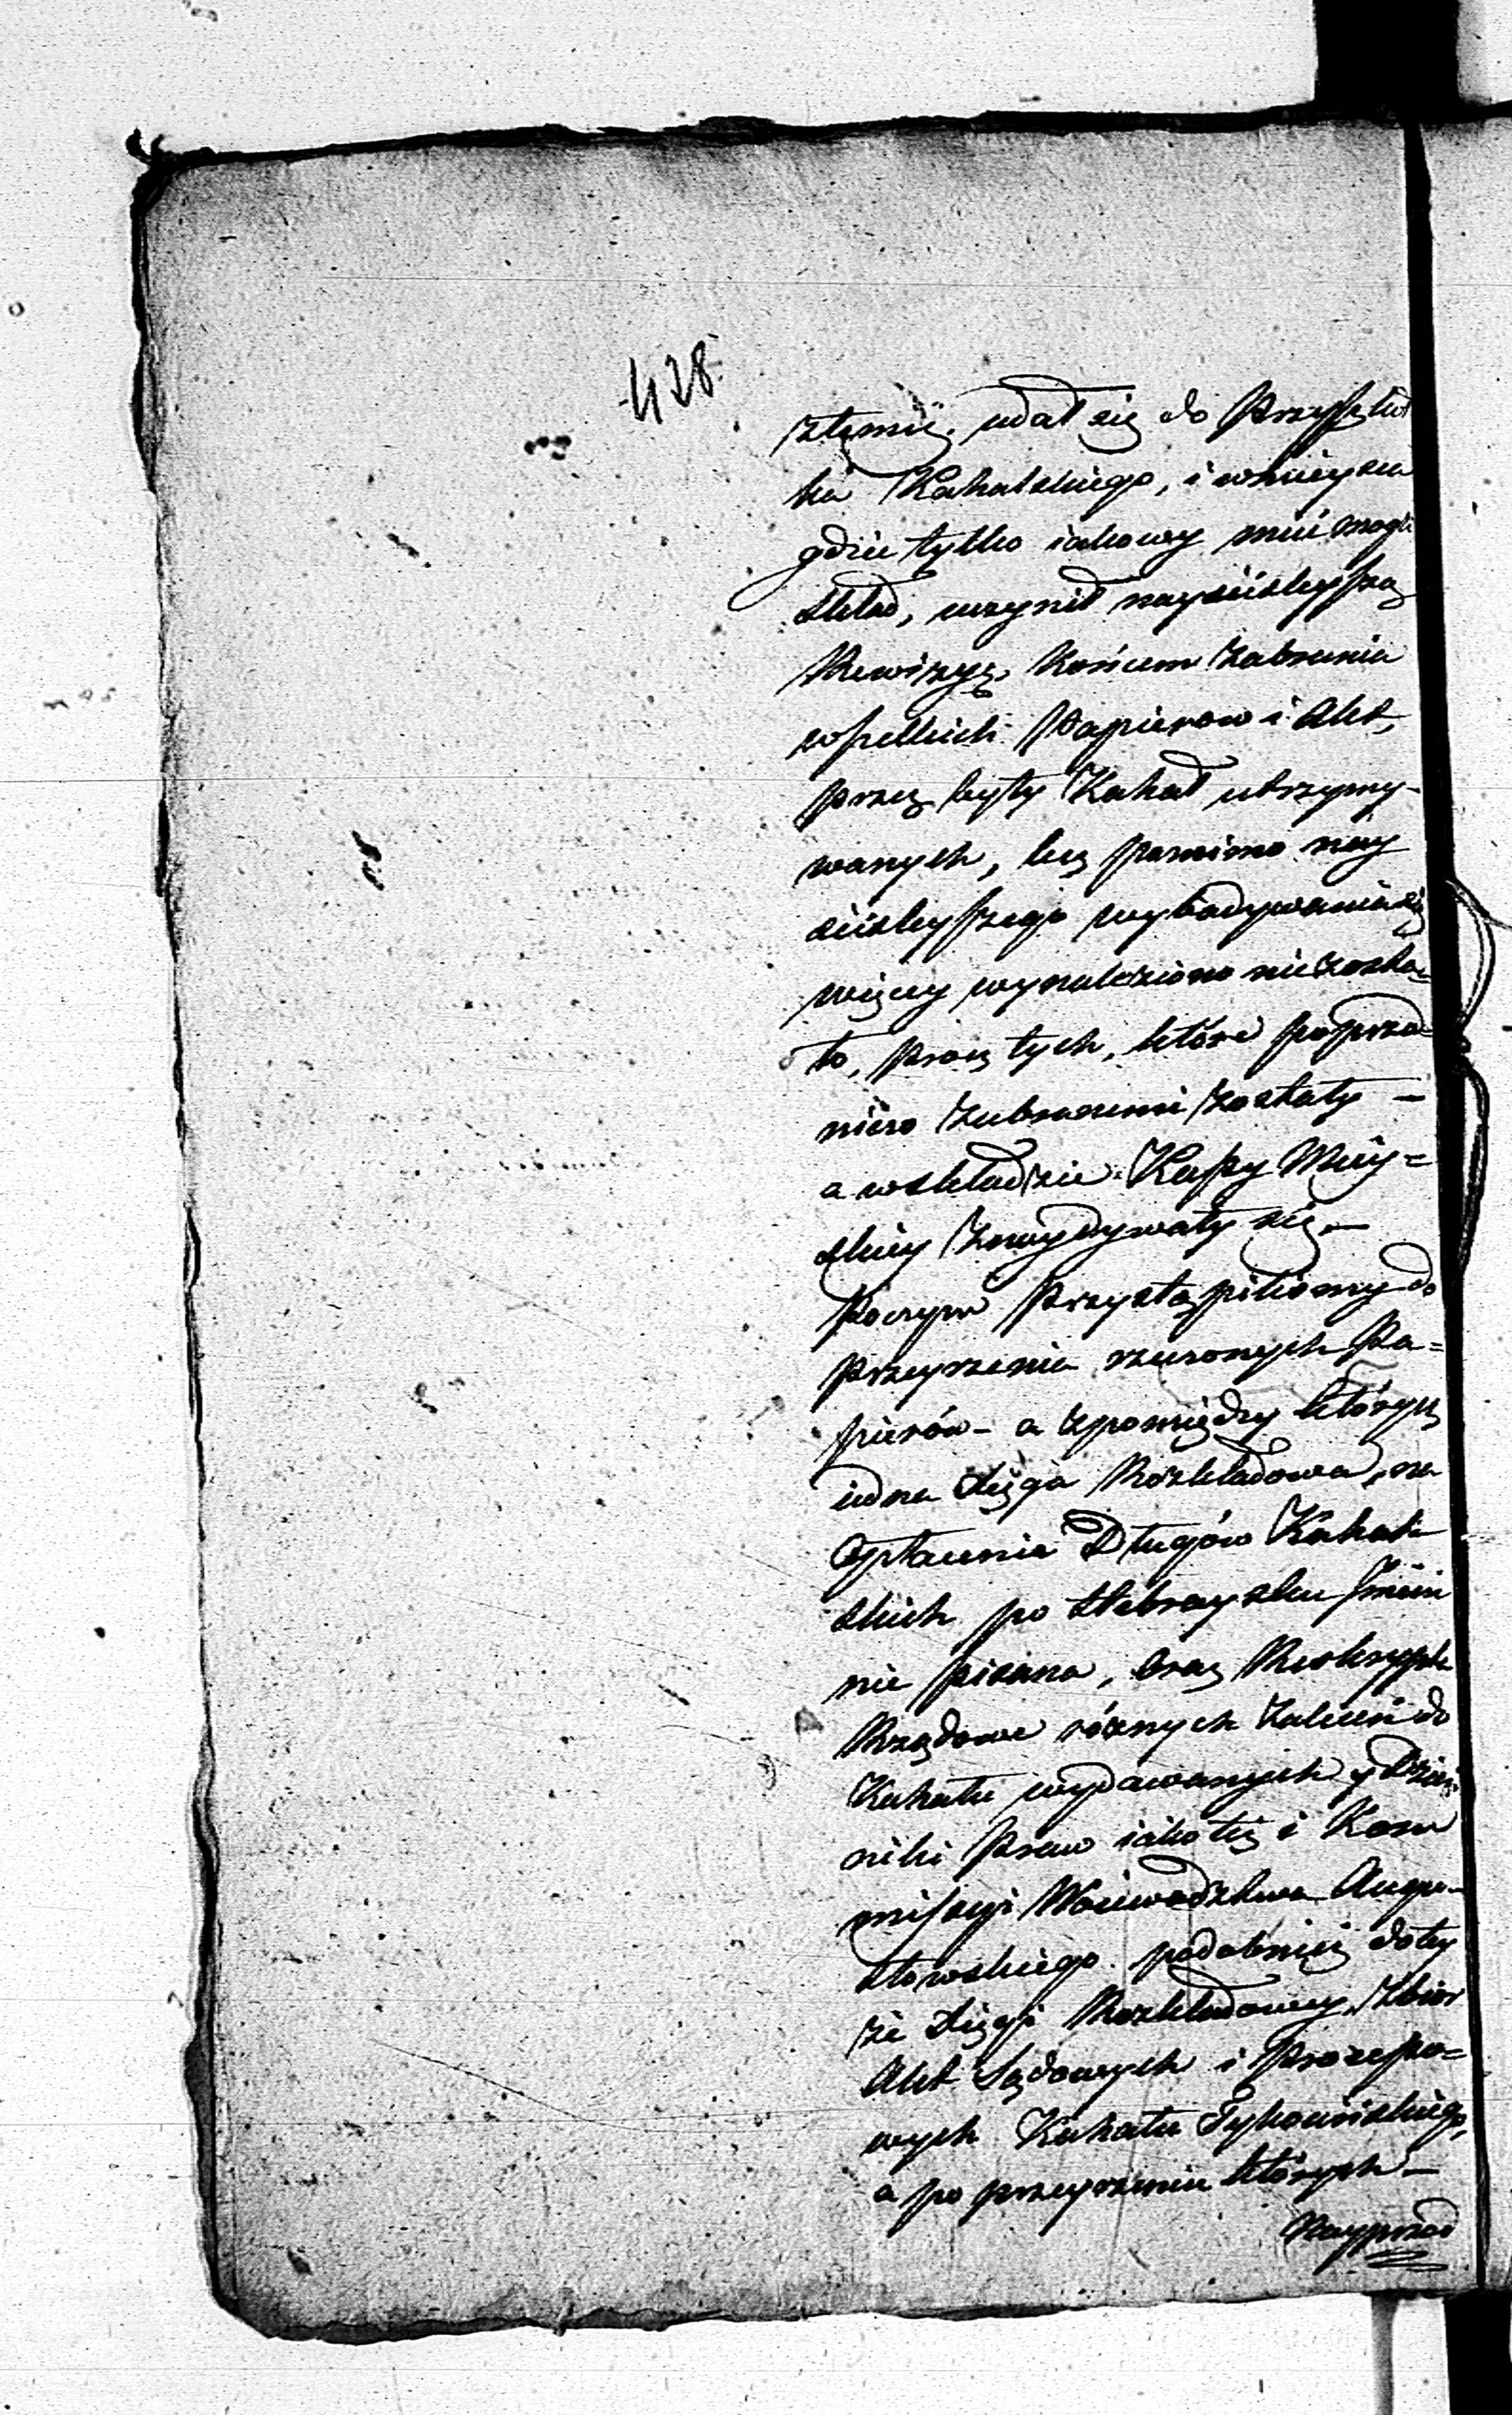 428
ztemiż udał się do Przysułt
ka Kahalskiego, i w mieyscu
gdzie tylko iakowy mieć mógł
skład, uczynił nayściśleyszą
Rewizyę, końcem zabrania
wszelkich Papierow i Akt,
przez były Kahał utrzymy-
wanych, lecz pomimo nay
ściśleyszego wybadywania się
więcey wynaleziono nie zosta=
ło, prócz tych, które poprzed=
niczo zabranemi zostały –
a w składzie Kassy Miey=
skiey znaydywały się. –
Poczym Przystąpiliśmy do
Przeyrzenia rzeczonych Pa=
pierów – a z pomiędzy których
iedna Xięga Rozkładowa, na
Opłacenie Długów Kahal-
skich po Hebraysku
nie pisana, oraz Reskrypta
Rządowe różnych zaleceń do
Kahału wydawanych, y Dzien
niki Praw iako też i Kom
missyi Woiewództwa Augu-
stowskiego. podobnież do tey
że Xięgi Rozkładowey, zbior
Akt Sądowych i Processo=
wych Kahału Tykocińskiego,
a po przeyrzeniu których –
Nayprzod